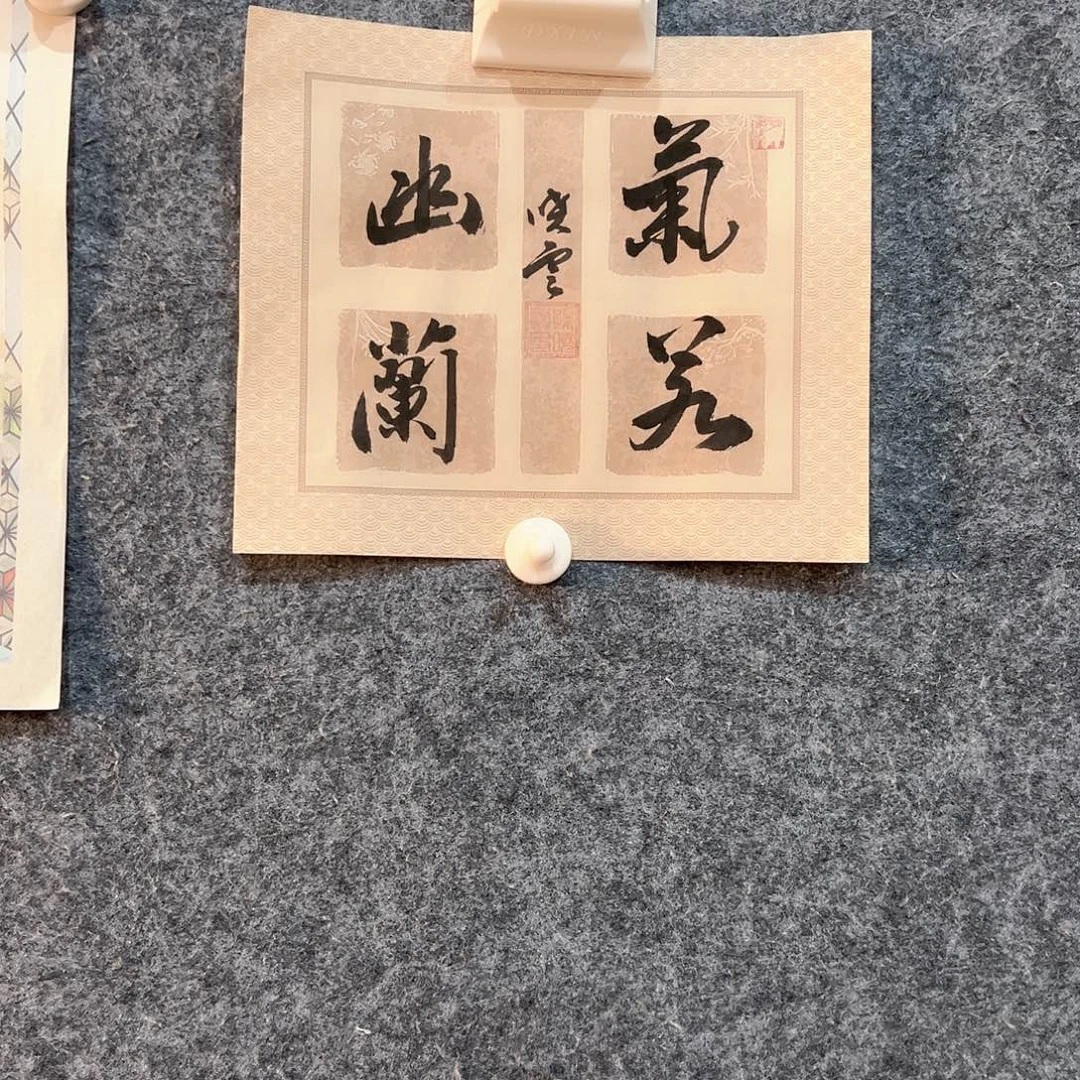 氣若
幽蘭
曉雲